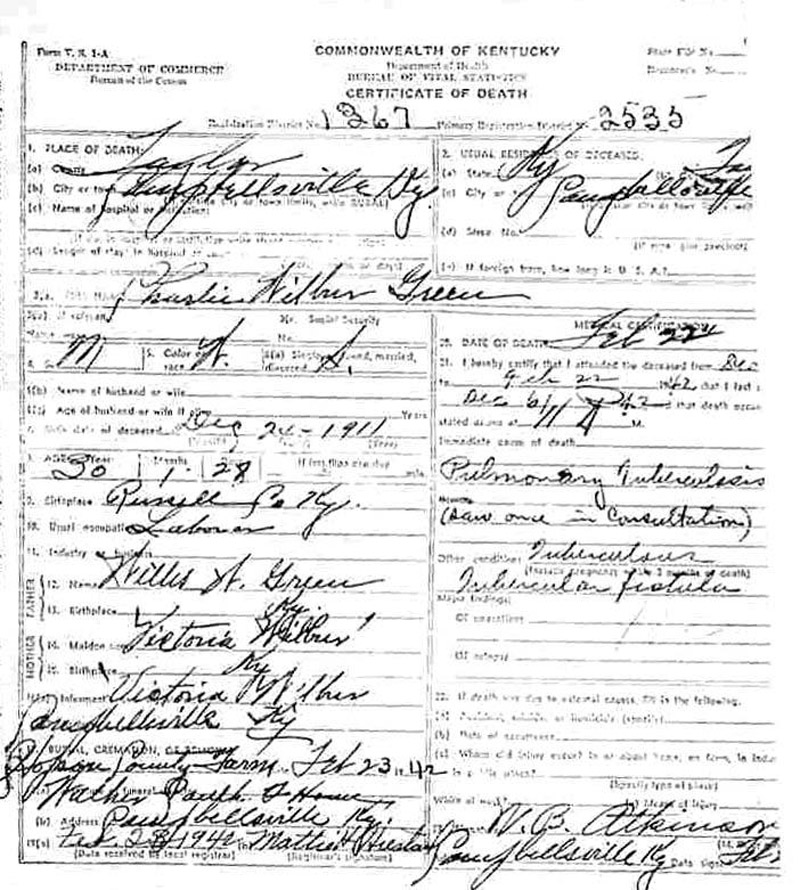 Form V. S. 1-A
DEPARTMENT OF COMMERCE
Bureau of the Census
COMMONWEALTH OF KENTUCKY
Department of Health
BUREAU OF VITAL STATISTICS
CERTIFICATE OF DEATH
State File No.
Registrar's No.
Registration District No. 1367 Primary Registration District No. 2535
1. PLACE OF DEATH:
(a) County Taylor
(b) City or town Campbellsville Ky.
(c) Name of hospital or institution:
(d) Length of stay: In hospital or
2. USUAL RESIDENCE OF DECEASED:
(a) State Ky
(c) City or Campbellsville
(d) Street No.
(If rural give precinct)
(e) If foreign born, how long in U. S. A.?
Charlie Wilbur Green
3(b) If veteran, 3(c) Social Security
No.
4. Sex M 5. Color or race W. 6(a) Single, widowed, married, divorced S.
6(b) Name of husband or wife
6(c) Age of husband or wife if alive Years
7. Birth date of deceased Dec 24 - 1911
8. AGE: Years 30 Months 1 Days 28 If less than one day
9. Birthplace Russell Co Ky.
10. Usual occupation Laborer
11. Industry or business
FATHER
12. Name Willis W. Green
13. Birthplace Ky.
MOTHER
14. Maiden name Victoria Wilbur
15. Birthplace Ky
Informant Victoria Wilbur
Campbellsville Ky
17. BURIAL, CREMATION, OR REMOVAL
County Farm Feb 23 1942
Home
(b) Address Campbellsville Ky.
Feb. 28 1942 Mattie H
(Date received by local registrar) (Registrar's signature)
MEDICAL CERTIFICATION
20. DATE OF DEATH Feb 22
21. I hereby certify that I attended the deceased from Dec
to Feb 22 1942, that I last s
Dec 6 that death occur
stated above at M.
Immediate cause of death
Pulmonary Tuberculosis
(saw once in Consultation)
Other conditions Tuberculous
(Include pregnancy within 3 months of death)
Tubercular fistula
Major findings:
Of operations
Of autopsy
22. If death was due to external causes, fill in the following:
(a) Accident, suicide, or homicide (specify)
(b) Date of occurrence
(c) Where did injury occur? In or about home, on farm, in indus
in public place?
(Specify type of place)
While at work? (e) Means of injury
W. B. Atkinson
Campbellsville Ky Date signed Feb